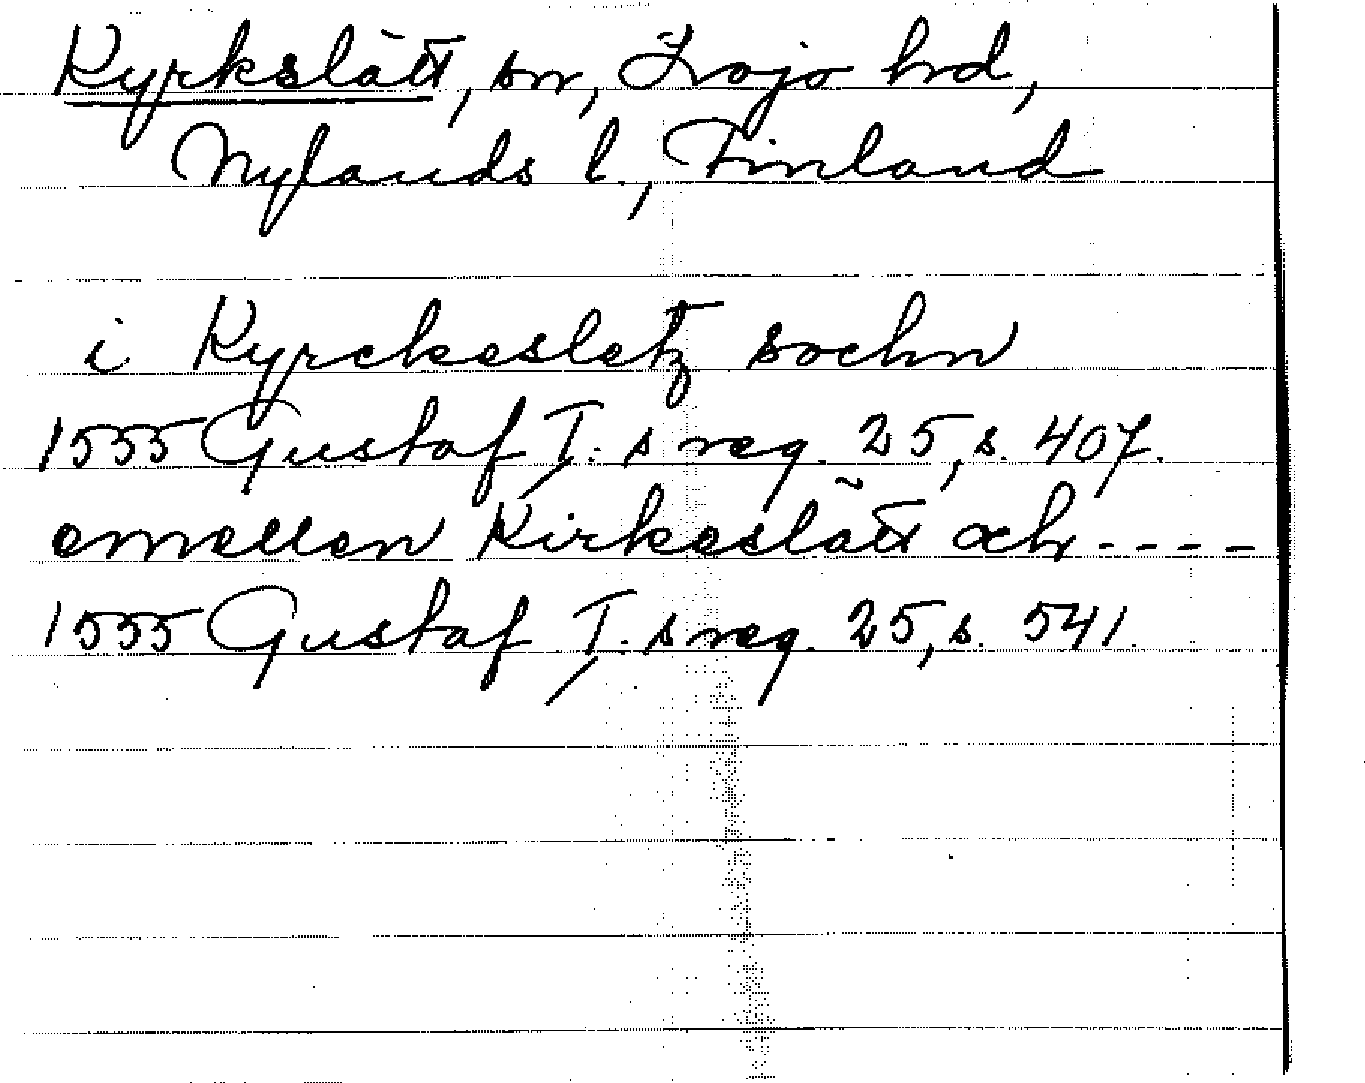 Kyrkslätt, sn, Lojo hrd,
Nylands l., Finland
i Kyrckesletz sochn
1555 Gustaf I:s reg. 25, s. 407.
emellen Kirkeslätt och - - - -
1555 Gustaf I:s reg. 25, s. 541.